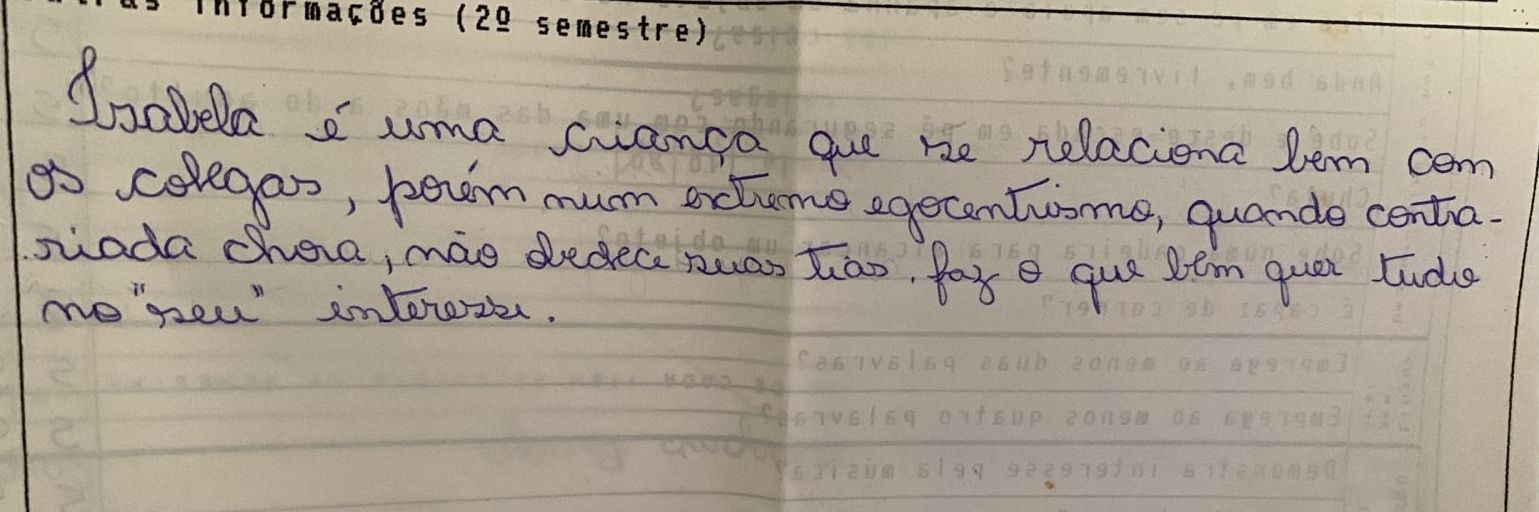 Outras informações (2º semestre)
Isabela é uma criança que se relaciona bem com
os colegas, porém num extremo egocentrismo, quando contra-
riada chora, não obedece suas tias, faz o que bem quer tudo
no "seu" interesse.